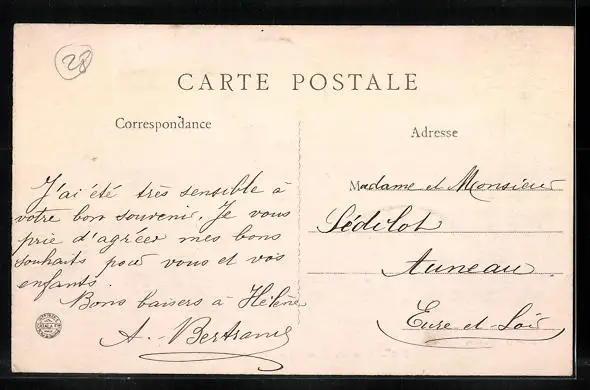 28
CARTE POSTALE
Correspondance
Adresse
J'ai été très sensible à
votre bon souvenir. Je vous
prie d'agréer mes bons
souhaits pour vous et vos
enfants.
Bons baisers à Hélène
A. Bertrand
Madame et Monsieur
Sédilot
Auneau
Eure et Loir